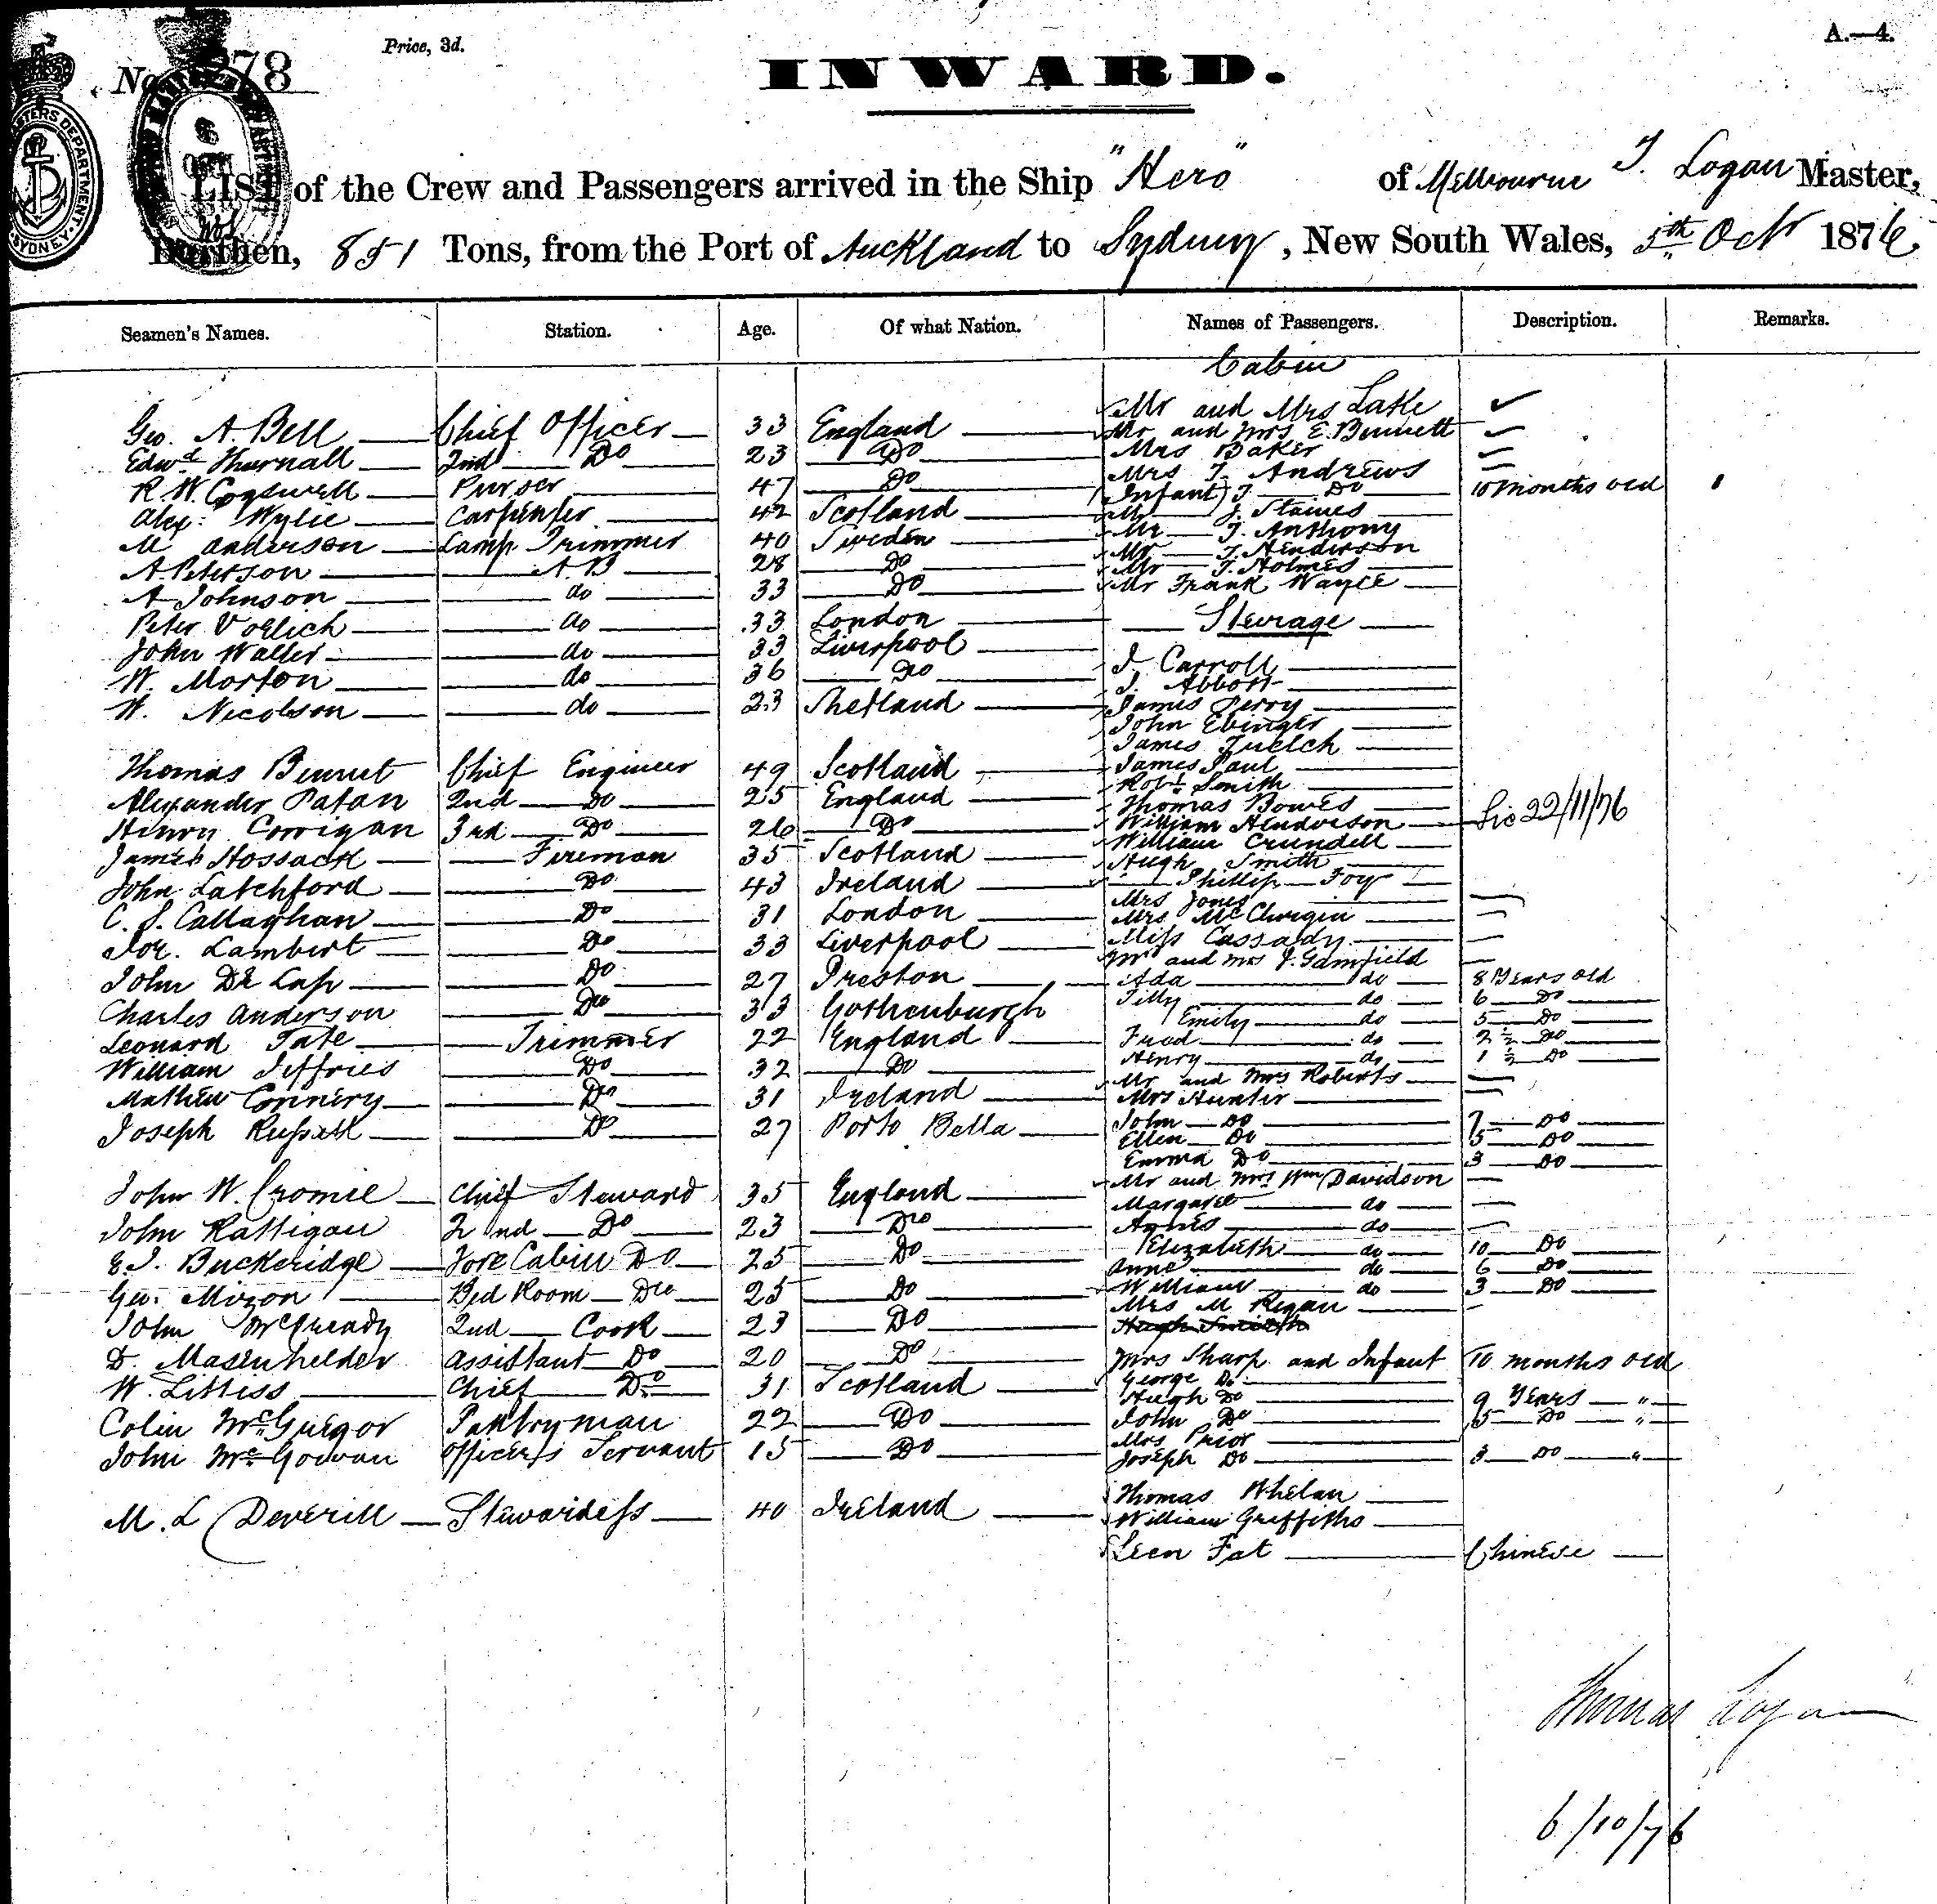 Price, 3d.
A.—4.
No 78
INWARD.
LIST of the Crew and Passengers arrived in the Ship "Hero" of Melbourne T. Logan Master,
Burthen, 851 Tons, from the Port of Auckland to Sydney, New South Wales, 5th Oct 1876
Seamen's Names. Station. Age. Of what Nation. Names of Passengers. Description. Remarks.
Geo. A. Bell Chief Officer 33 England
Edwd Thurnall 2nd Do 23 Do
R. W. Cogswell Purser 47 Do
Alex: Wylie Carpenter 42 Scotland
M Anderson Lamp Trimmer 40 Sweden
A. Peterson A.B 28 Do
A Johnson do 33 Do
Peter do 33 London
John Waller do 33 Liverpool
W. Morton do 36 Do
W. Nicolson do 23 Shetland
Thomas Bennet Chief Engineer 49 Scotland
Alexander Paton 2nd Do 25 England
Henry Corrigan 3rd Do 26 Do
James Hossack Fireman 35 Scotland
John Latchford Do 43 Ireland
C. S. Callaghan Do 31 London
Lambert Do 33 Liverpool
John De Lap Do 27 Preston
Charles Anderson Do 33 Gothenburgh
Leonard Tate Trimmer 22 England
William Jeffries Do 32 Do
Mathew Connery Do 31 Ireland
Joseph Russell Do 27 Porto Bella
John W. Cromie Chief Steward 35 England
John Rattigan 2nd Do 23 Do
E J. Buckeridge Fore Cabin Do 25 Do
Geo: Mixon Bed Room Do 25 Do
John McCready 2nd Cook 23 Do
D. Masenhelder Assistant Do 20 Do
W. Littiss Chief Do 31 Scotland
Colin McGregor Pantryman 22 Do
John McGowan Officers Servant 15 Do
M. L Deverill Stewardess 40 Ireland
Cabin
Mr and Mrs Lake
Mr and Mrs E. Bennett
Mrs Baker
Mrs T. Andrews
(Infant) T. Do 10 months old
Mr J. Staines
Mr T. Anthony
Mr T. Henderson
Mr T. Holmes
Mr Frank
Steerage
J. Carroll
J. Abbott
James Perry
John Ebinger
James Tuelch
James Paul
Robt Smith
Thomas Bowes
William Henderson 22/11/76
William Crundell
Hugh Smith
Phillip Foy
Mrs Jones
Mrs
Miss Cassady
Mr and Mrs J. Gamfield
Ada do 8 Years old
Tilly do 6 Do
Emily do 5 Do
Fred do 2½ Do
Henry do 1½ Do
Mr and Mrs Roberts
Mrs Hunter
John Do 7 Do
Ellen Do 5 Do
Emma Do 3 Do
Mr and Mrs Wm Davidson
Margaret do
Agnes do
Elizabeth do 10 Do
Anne do 6 Do
William do 3 Do
Mrs M Regan
Hugh Smith
Mrs Sharp and Infant 10 months old
George Do
Hugh Do 9 Years "
John Do 5 Do "
Mrs Prior
Joseph Do 3 Do "
Thomas Whelan
William Griffiths
Leen Fat Chinese
Thomas Logan
6/10/76